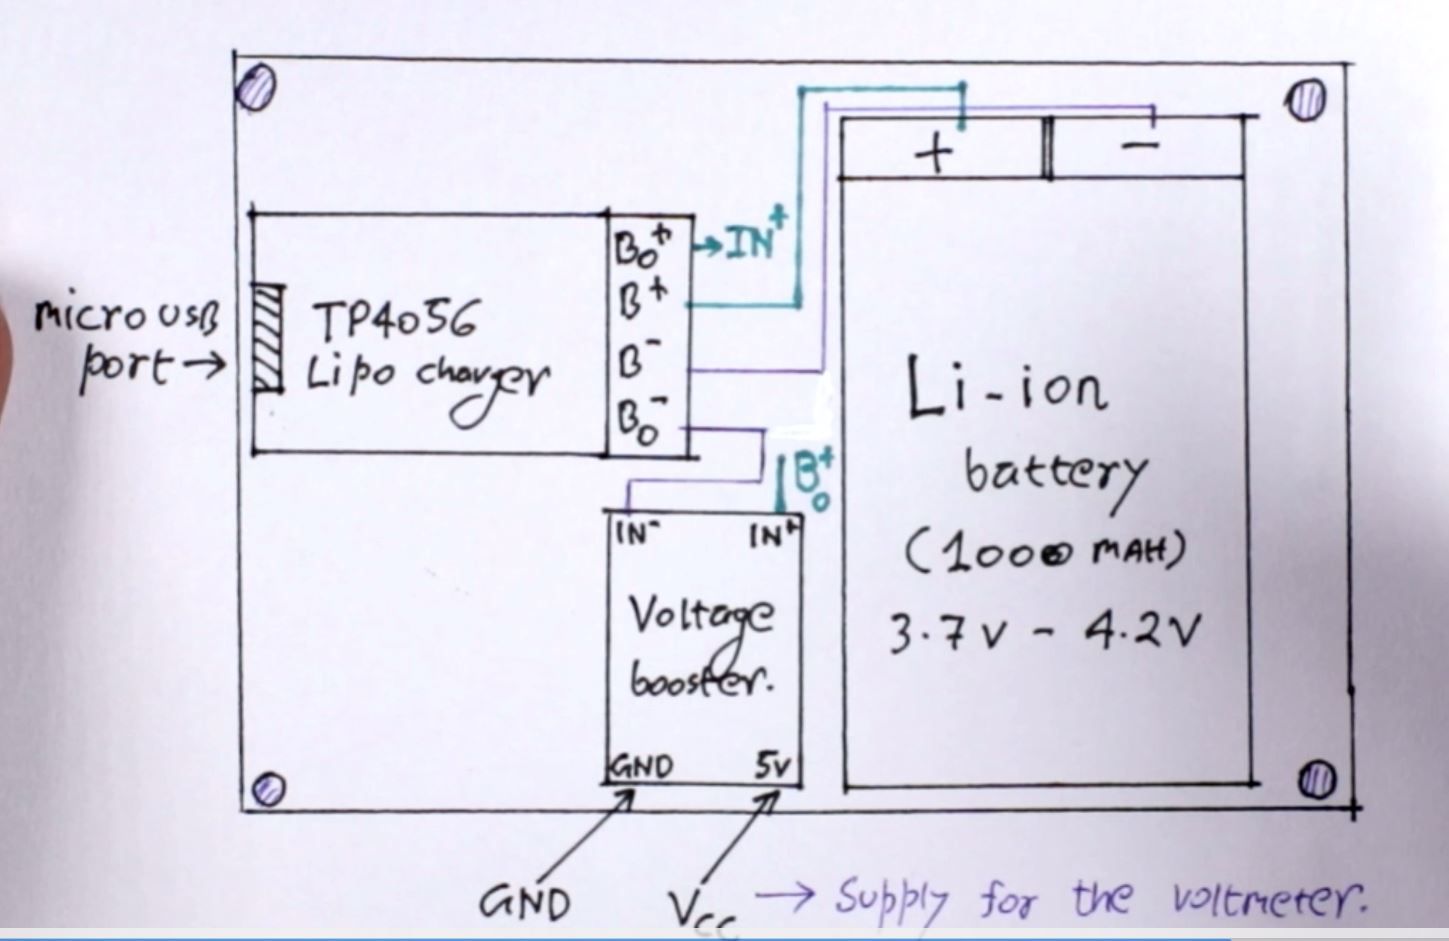 + −
B₀⁺ → IN⁺
B⁺
B⁻
B₀⁻
micro USB
port →
TP4056
Lipo charger
B₀⁺
IN⁻ IN⁺
Voltage
booster.
GND 5V
Li-ion
battery
(1000 mAH)
3.7V - 4.2V
GND
Vcc → Supply for the voltmeter.